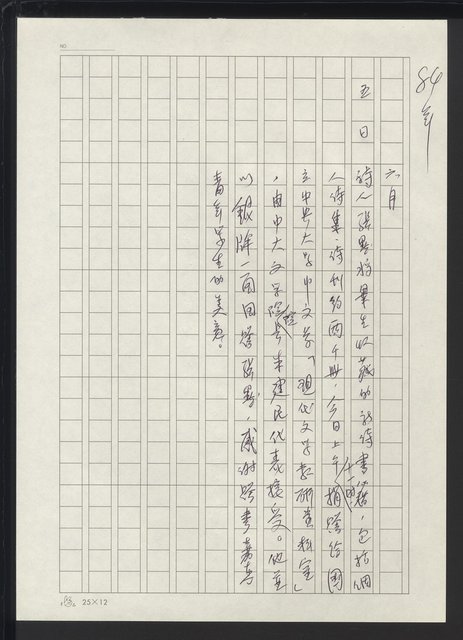 84年
六月
五日
詩人張默將畢生收藏的新詩書籍，包括個
人詩集、詩刊約兩千冊，今日上午十一時捐贈給國
立中央大學中文系「現代文學教研資料室」
，由中大文學院院長朱建民代表接受。他並
以銀牌一面回贈張默，感謝贈書嘉惠
青年學生的美意。
NO
25×12